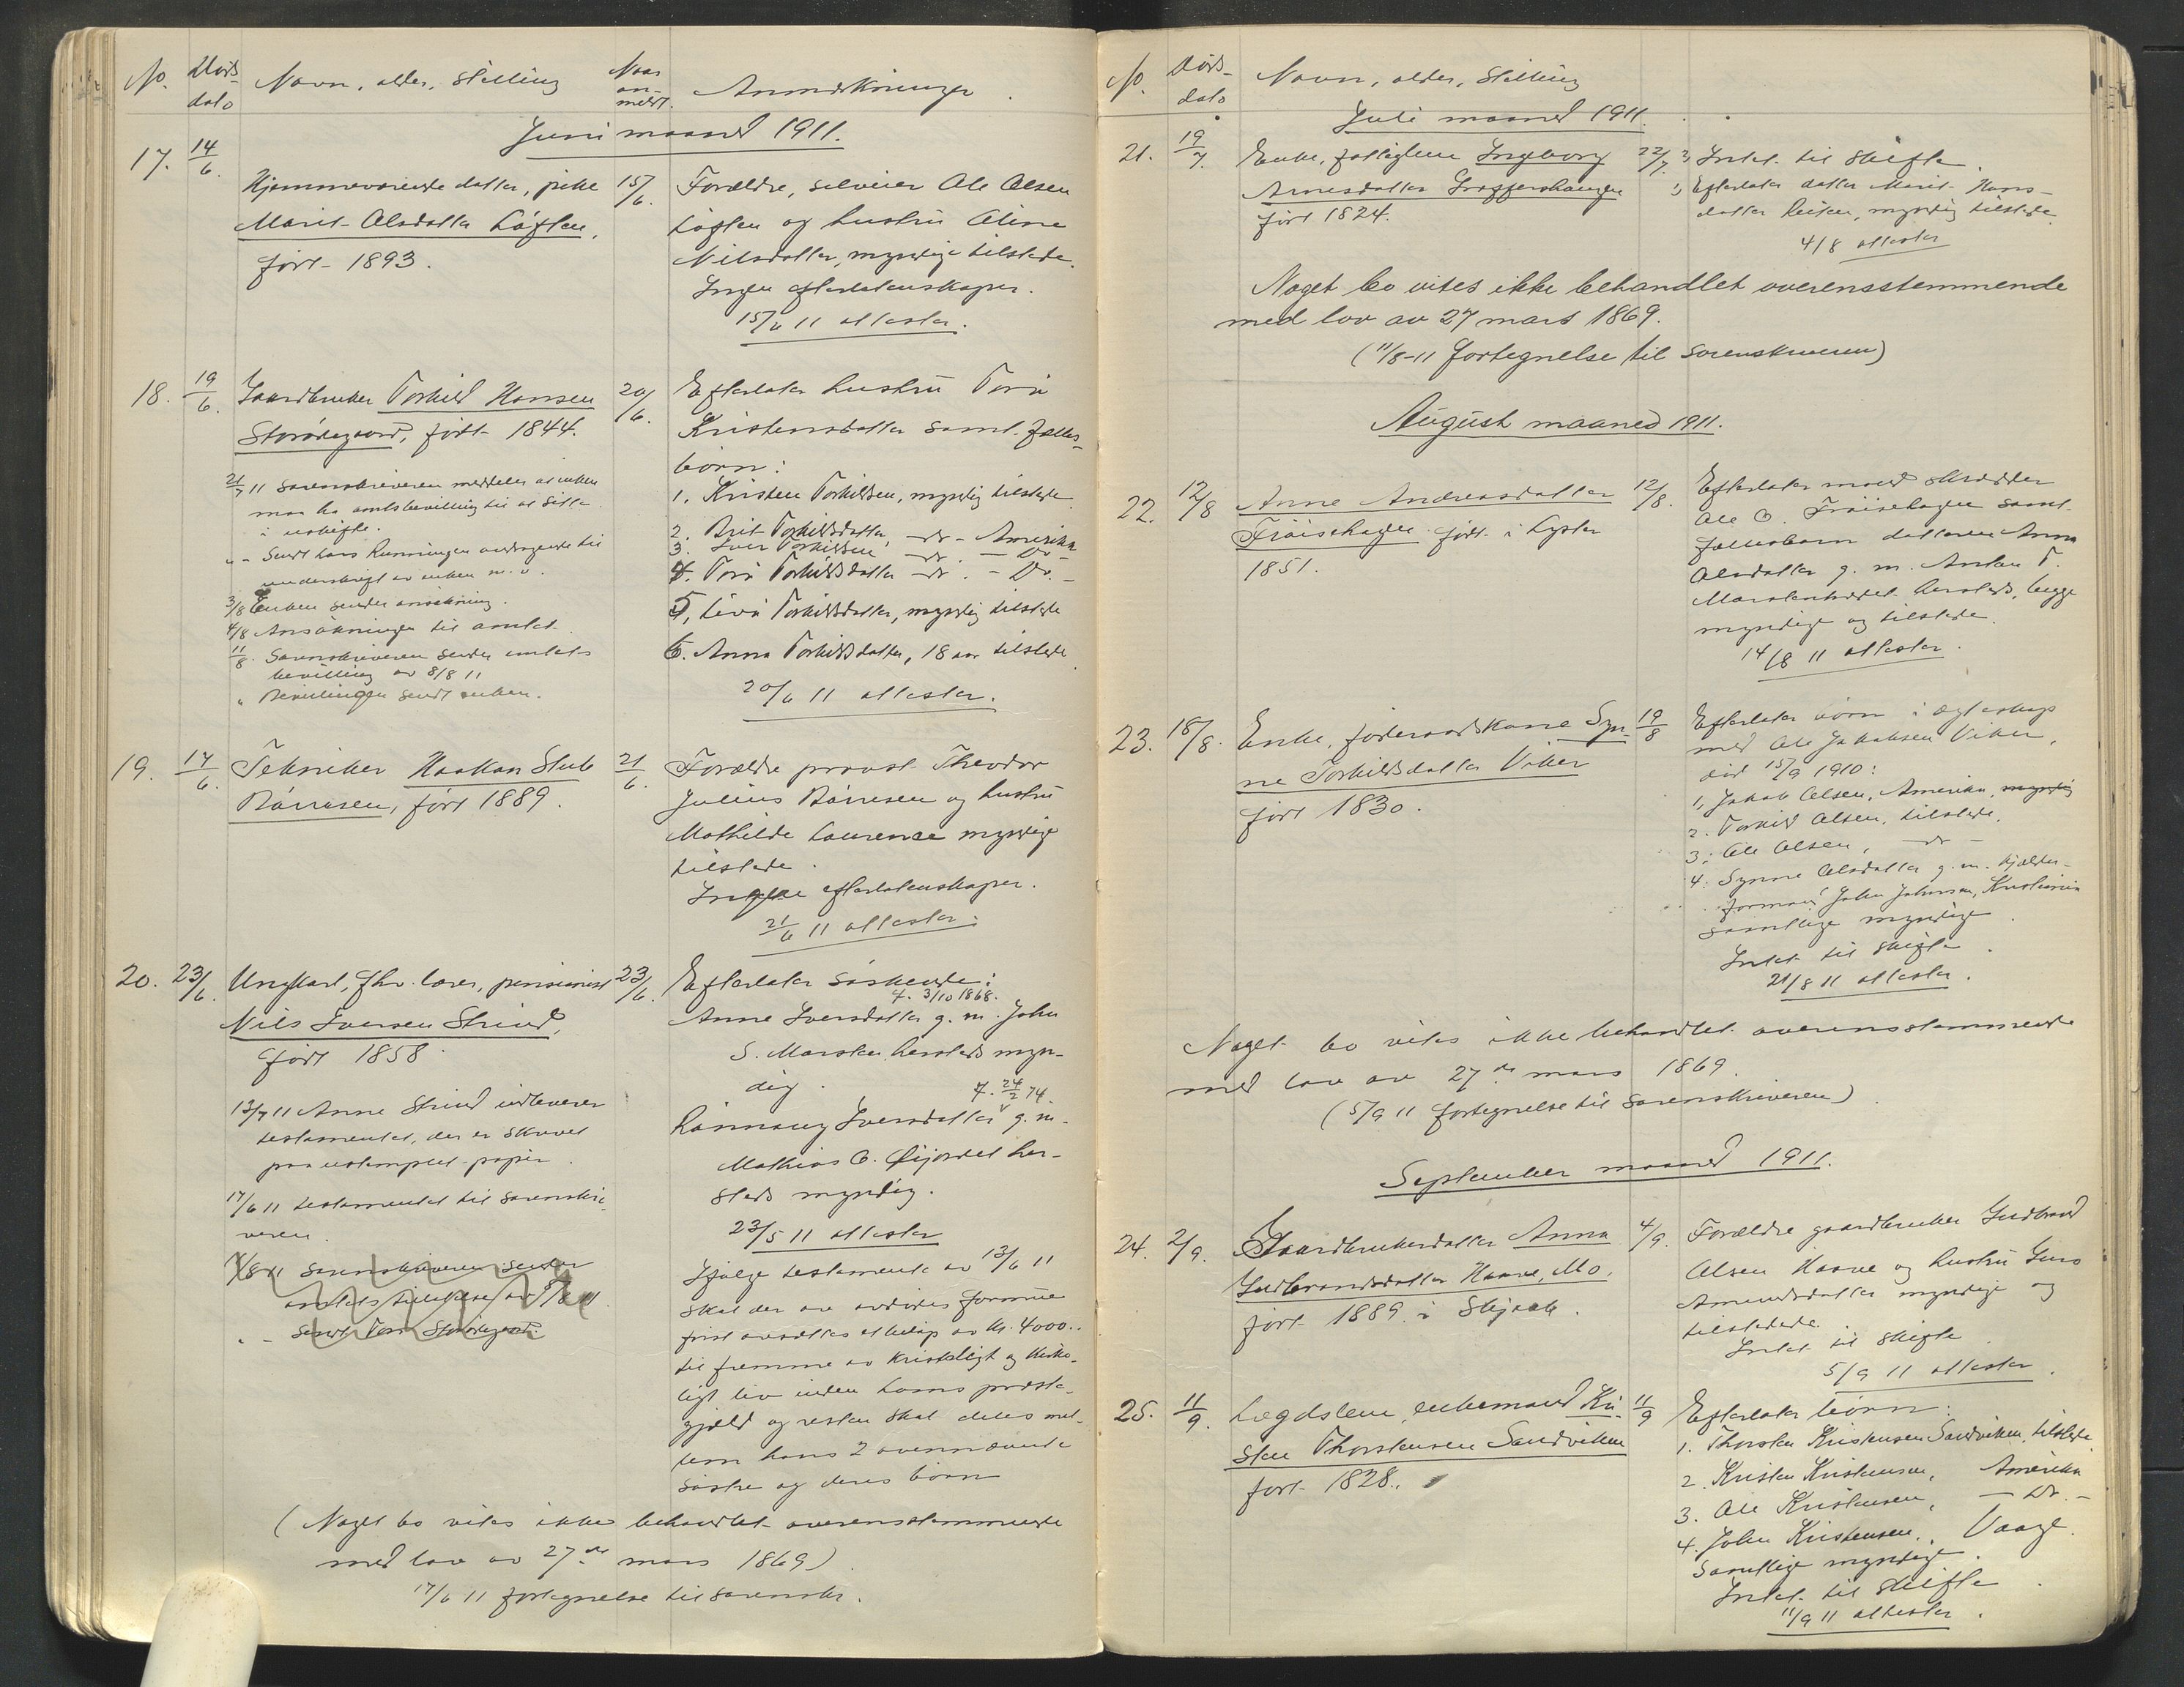 No. Døds- dato Navn, alder, stilling Naar an- meldt. Anmerkninger.
Juni maaned 1911.
17. 14/6.
Hjemmeværende datter, pike
Marit Olsdatter Løften,
født 1893.
15/6. Forældre, selveier Ole Olsen
Løften og hustru Eline
Nilsdatter, myndige tilstede.
Ingen efterlatenskaper.
15/6 11 attester.
18. 19/6. Gaardbruker Torkild Hansen
Storødegaard, født 1844.
21/7 11 Sorenskriveren meddeler at enken
maa ha amtsbevilling til at sitte
i uskifte.
" - Sendt Lars Runningen andragende til
underskrift av enken m. v.
3/8 Enken sender ansøkning.
4/8 Ansøkningen til amtet.
11/8. Sorenskriveren sender amtets
bevilling av 8/8 11
" Bevilingen sendt enken.
20/6. Efterlater hustru Torø
Kristensdatter samt fælles-
børn:
1. Kristen Torkildsen, myndig tilstede
2. Brit Torkildsdatter, -do- Amerika
3. Iver Torkildsen -do- - Do -
4. Torø Torkildsdatter -do- - Do. -
5. Livø Torkildsdatter, myndig tilstede
6. Anna Torkildsdatter, 18 aar tilstede
20/6 11 attester.
19. 17/6. Tekniker Haakon Stub
Børresen, født 1889.
21/6. Forældre provst Theodor
Julius Børresen og hustru
Mathilde Laurence myndige
tilstede.
Ingen efterlatenskaper.
21/6 11 attester.
20. 23/6. Ungkarl, fhv. lærer, pensionist
Nils Iversen Strind,
født 1858.
13/7 11 Anne Strind indleverer
testamentet, der er skrevet
paa ustemplet papir.
17/6 11 testamentet til sorenskri-
veren.
8/8 11 Sorenskriveren sender
amtets tilladelse av 8/8 11.
" - Sendt Torø Storødegaard
23/6. Efterlater søskende:
f. 3/10 1868.
Anne Iversdatter g. m. John
S. Marsten hersteds myn-
dig.
f. 24/2 74.
Rønnaug Iversdatter g. m.
Mathias O. Øijordet her-
steds myndig.
23/5 11 attester
Ifølge testamente av 13/6 11
skal der av avdødes formue
først avsættes et beløp av kr. 4000..
til fremme av kristeligt og kirke-
ligt liv inden Loms præste-
gjæld og resten skal deles mel-
lem hans 2 ovennævnte
søstre og deres børn
(Noget bo vites ikke behandlet overensstemmende
med lov av 27de mars 1869)
17/6 11 fortegnelse til sorenskr.
No. Døds- dato Navn, alder, stilling
Juli maaned 1911.
21. 19/7. Enke, fattiglem Ingeborg
Arnesdatter
født 1824.
22/7 2, Intet til skifte.
1, Efterlater datter Marit Hans-
datter Reisen, myndig tilstede
4/8 attester
Noget bo vites ikke behandlet overensstemmende
med lov av 27 mars 1869.
(11/8-11 fortegnelse til sorenskriveren)
August maaned 1911.
22. 12/8 Anne Andreasdatter
Frøisehagen født i Lyster
1851.
12/8. Efterlater mand skrædder
Ole O. Frøisehagen samt
fællesbarn datteren Anna
Olsdatter g. m. Anton T.
hersteds, begge
myndige og tilstede.
14/8 11 attester.
23. 18/8. Enke, føderaadskone Syn-
ne Torkildsdatter Viken
født 1830.
19/8 Efterlater børn i egteskap
med Ole Jakobsen Viken,
død 15/9 1910:
1, Jakob Olsen, Amerika, myndig
2. Torkild Olsen, tilstede.
3; Ole Olsen, -do-
4. Synne Olsdatter g. m.
formand John Johnsen, Kristiania
samtlige myndige.
Intet til skifte.
21/8 11 attester.
Noget bo vites ikke behandlet overensstemmende
med lov av 27de mars 1869.
(5/9 11 fortegnelse til sorenskriveren).
September maaned 1911.
24. 2/9. Gaardbrukerdatter Anna
Gudbrandsdatter Haave, Mo.
født 1889 i Skjaak.
4/9. Forældre gaardbruker Gudbrand
Olsen Haave og hustru Guro
Amundsdatter myndige og
tilstede.
Intet til skifte
5/9 11 attester.
25. 11/9. Lægdslem, enkemand Kri-
sten Thorstensen Sandviken
født 1828.
11/9 Efterlater børn:
1. Thorsten Kristensen Sandviken, tilstede
2. Kristen Kristensen, Amerika
3. Ole Kristensen, - Do. -
4. John Kristensen, Vaage.
Samtlige myndige.
Intet til skifte.
11/9 11 attester.